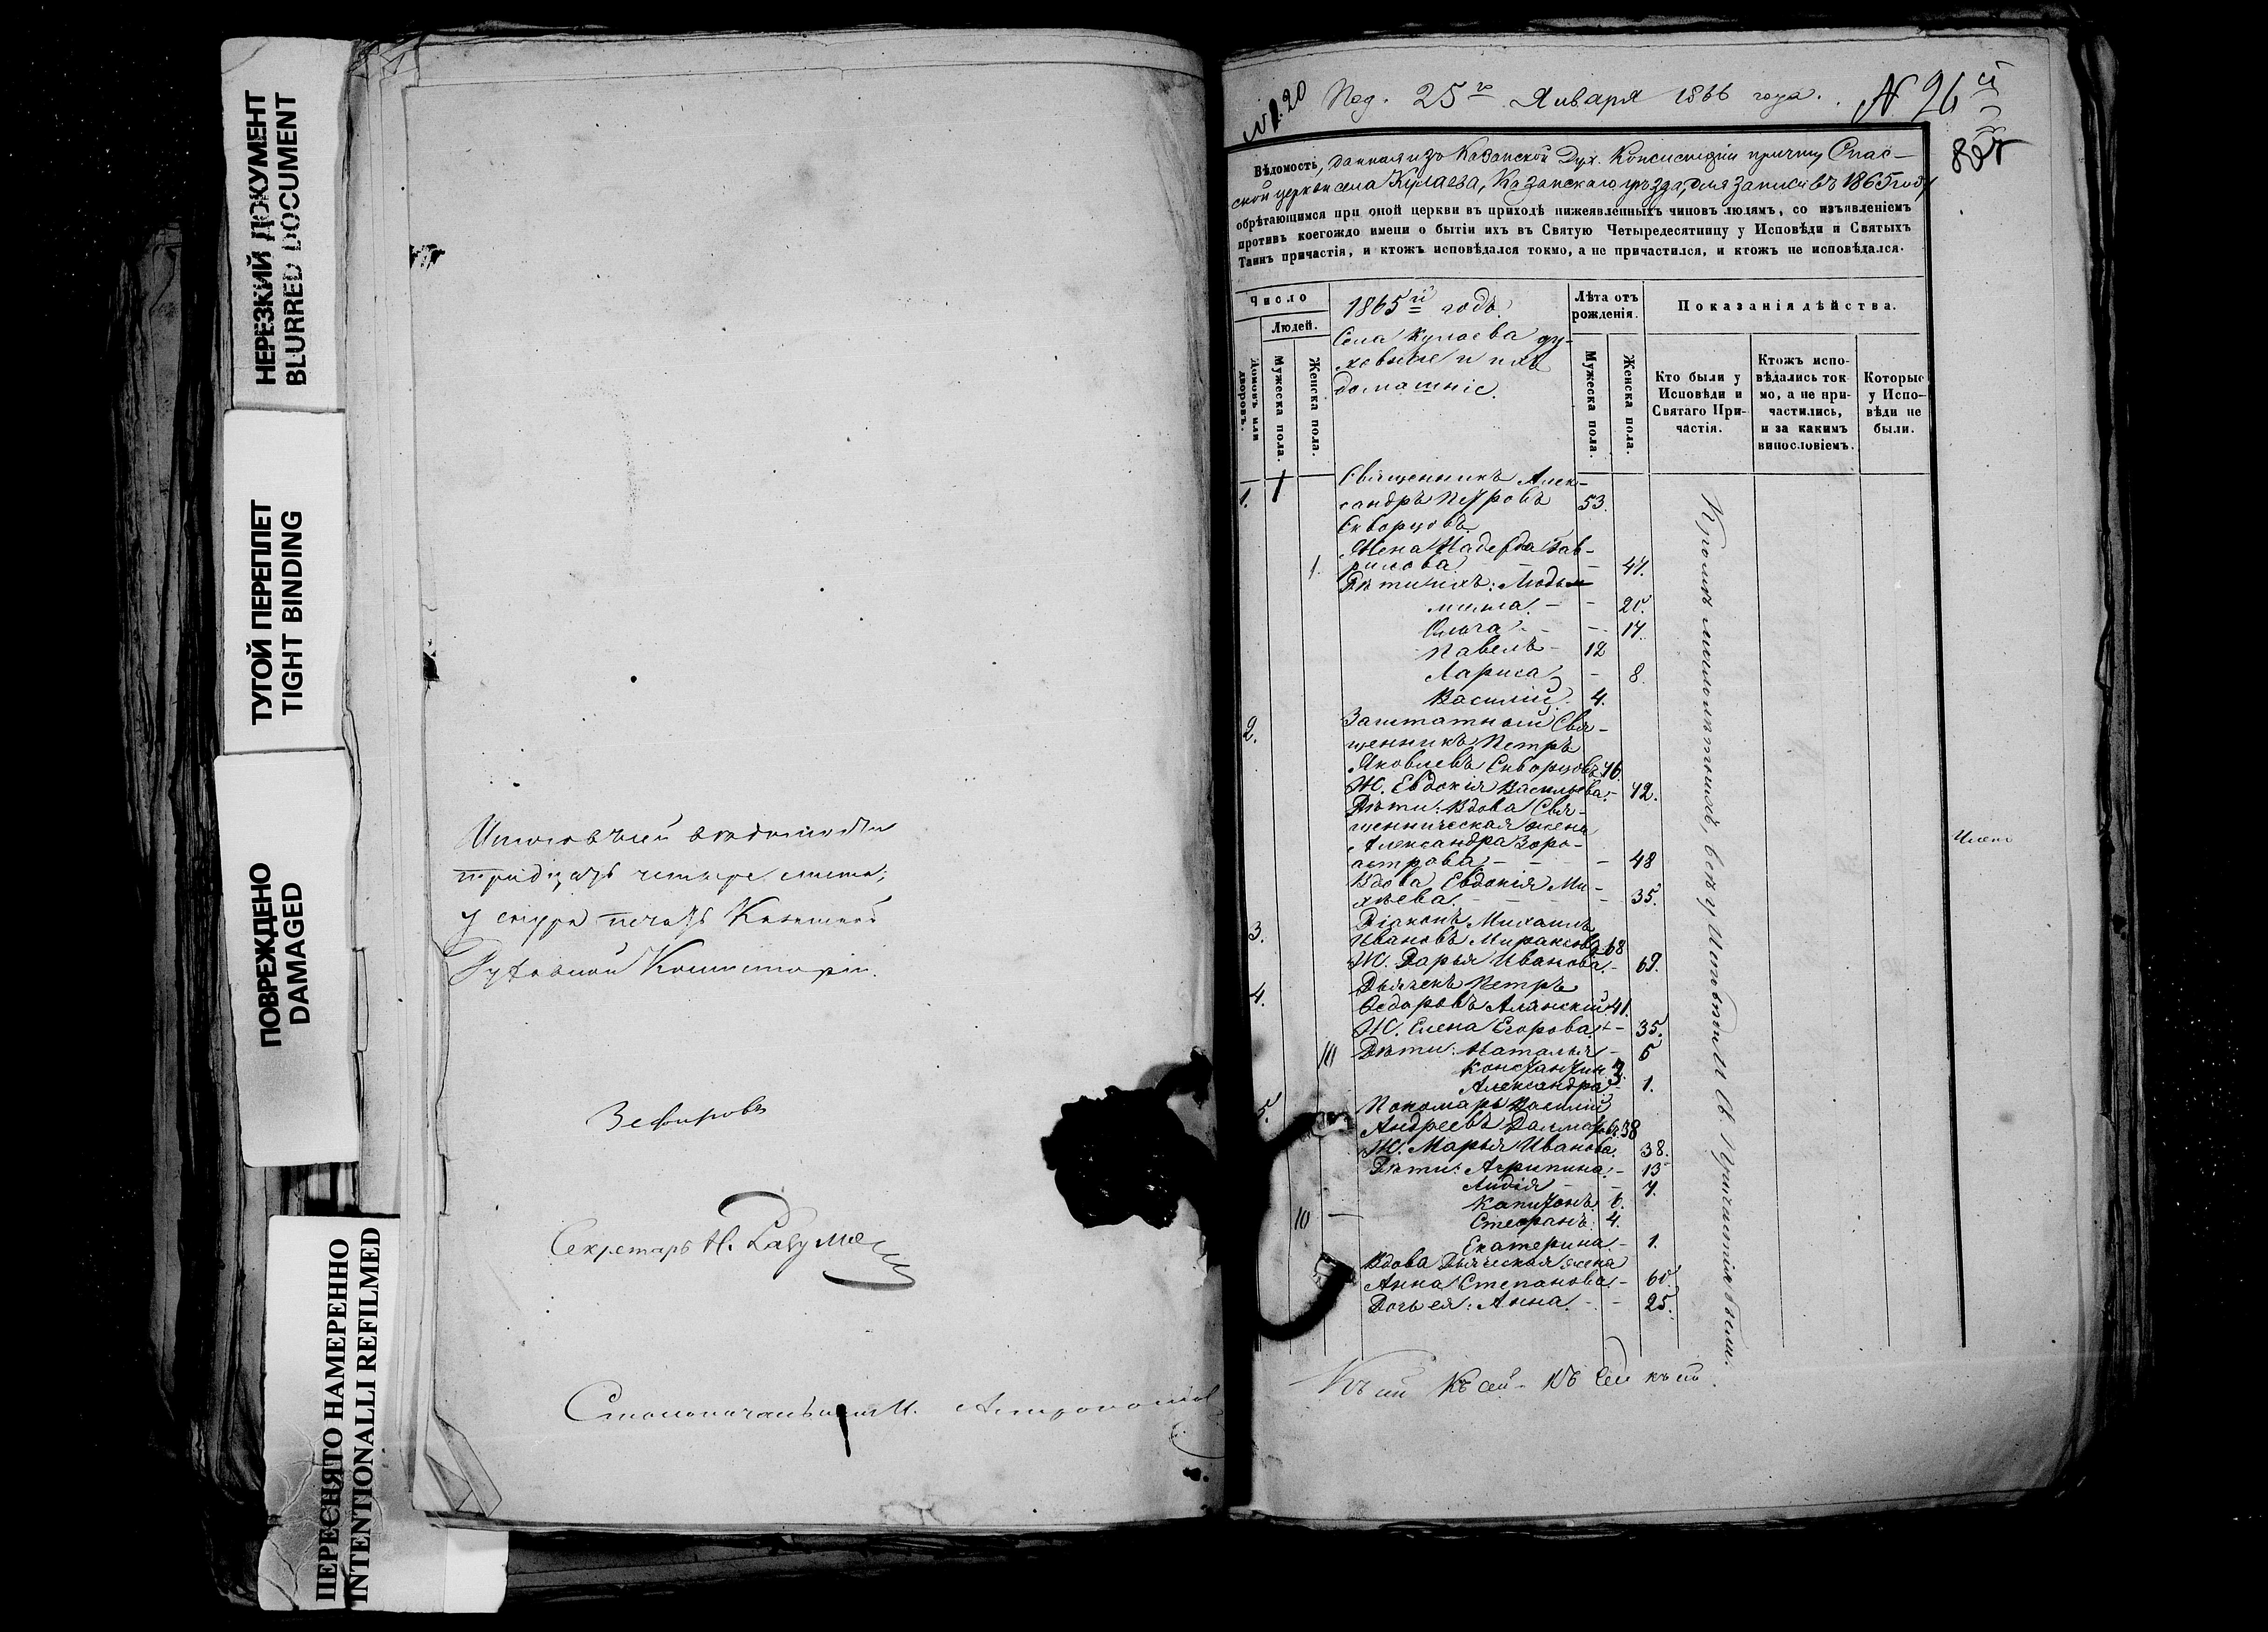 НЕРЕЗКИЙ ДОКУМЕНТ
BLURRED DOCUMENT
ТУГОЙ ПЕРЕПЛЕТ
TIGHT BINDING
ПОВРЕЖДЕНО
DAMAGED
ПЕРЕСНЯТО НАМЕРЕННО
INTENTIONALLI REFILMED
тридцать четыре листа;
у снура печать Казанской
Духовной Консисторіи.
Зефировъ
Секретарь Н.
Столоначальникъ
№ 20 Под. 25го Января 1866 года. № 26й
Вѣдомость, данная изъ Казанской Дух. Консисторіи причту Спас-
ской церкви села Кулаева, Казанскаго уѣзда, для записи въ 1865 году
обрѣтающимся при оной церкви въ приходѣ нижеявленныхъ чиновъ людямъ, со изъявленіемъ
противъ коегождо имени о бытіи ихъ въ Святую Четыредесятницу у Исповѣди и Святыхъ
Таинъ причастія, и ктожъ исповѣдался токмо, а не причастился, и ктожъ не исповѣдался.
Число
Людей.
Домовъ или дворовъ.
Мужеска пола.
Женска пола.
1865й годъ.
Села Кулаева ду-
ховные и ихъ
домашніе.
Лѣта отъ рожденія.
Мужеска пола.
Женска пола.
Показанія дѣйства.
Кто были у Исповѣди и Святаго Причастія.
Ктожъ исповѣдались токмо, а не причастились, и за какимъ винословіемъ.
Которые у Исповѣди не были.
1. 1 Священникъ Алек-
сандръ Петровъ 53.
Скворцовъ
Жена Надежда Гав-
рилова 1. - 47.
Дѣти ихъ: Люд-
мила. - - 21.
Ольга - - 17.
Павелъ - 12
Лариса - 8.
Василій. 4.
2. Заштатный Свя-
щенникъ Петръ
Яковлевъ Скворцовъ 76
Ж. Евдокія Васильева. - 72.
Дѣти: Вдова Свя-
щенническая жена
Александра Зоро-
астрова - - - 48
Вдова Евдокія Ми-
хѣева. - - - 35.
3. Діаконъ Михаилъ
Ивановъ 68
Ж. Дарья Иванова. - 69.
4. Дьячекъ Петръ
Ѳедоровъ Аланский 41.
Ж. Елена Егорова. - 35.
Дѣти: Наталья - 5
Константин 3.
Александра - 1.
5. Пономарь Василій
Андреевъ 38
Ж. Марья Иванова. 38.
Дѣти: Агрипина. - 13
Лидія - - 7.
Капитонъ 6.
10 Стефанъ. 4.
Екатерина - 1.
Вдова Дьяческая жена
Анна Степанова. - 60.
Дочь ея: Анна. - - 25.
Кромѣ малолѣтныхъ, всѣ у Исповѣди и Св. Причастія были.